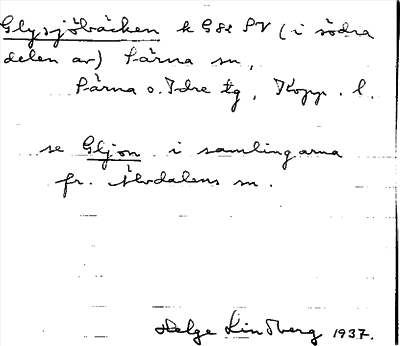 Glysjöbäcken k G 82 SV (i södra
delen av) Särna sn,
Särna o. Idre tg, Kopp. l.
se Gljon i samlingarna
fr. Älvdalens sn.
Helge Lindberg 1937.